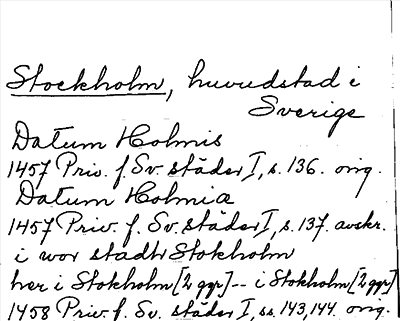 Stockholm, huvudstad i
Sverige
Datum Holmis
1457 Priv. f. Sv. städer I, s. 136. orig.
Datum Holmia
1457 Priv. f. Sv. städer I, s. 137. avskr.
i wor stadh Stokholm
her i Stokholm [2 ggr] -- i Stokholm [2 ggr]
1458 Priv. f. Sv. städer I, ss. 143, 144. orig.